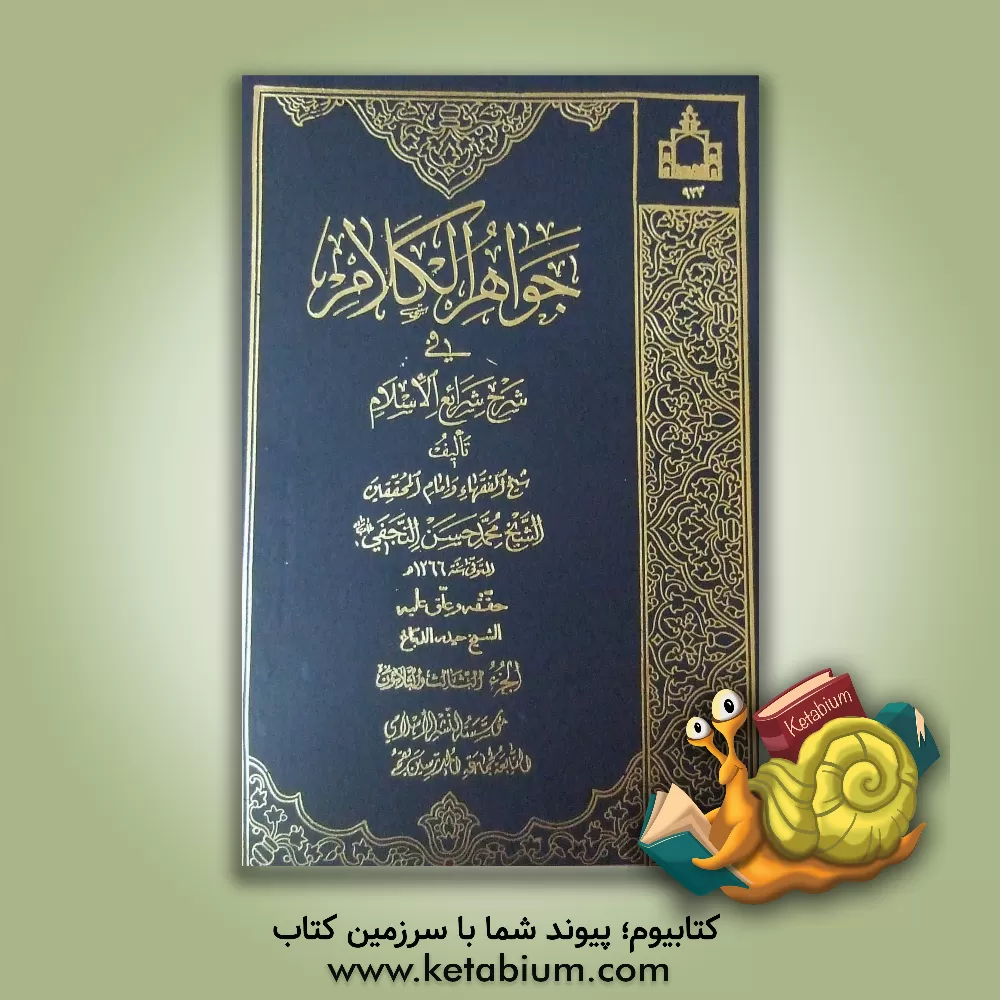 ٩٣٣
جَوَاهِرُ الْكَلَامِ
في
شَرْحِ شَرَائِعِ الْإِسْلَامِ
تَأليفُ
شيخ الفقهاء وإمام المحققين
الشَّيْخ مُحَمَّد حَسَنْ النَّجَفِي
المتوفى سنة ١٢٦٦ هـ
حققه وعلق عليه
الشيخ حيدر الدباغ
الجزء الثالث والثلاثون
مؤسسة النشر الإسلامي
التابعة لجماعة المدرسين بقم
Ketabium
کتابیوم؛ پیوند شما با سرزمین کتاب
www.ketabium.com